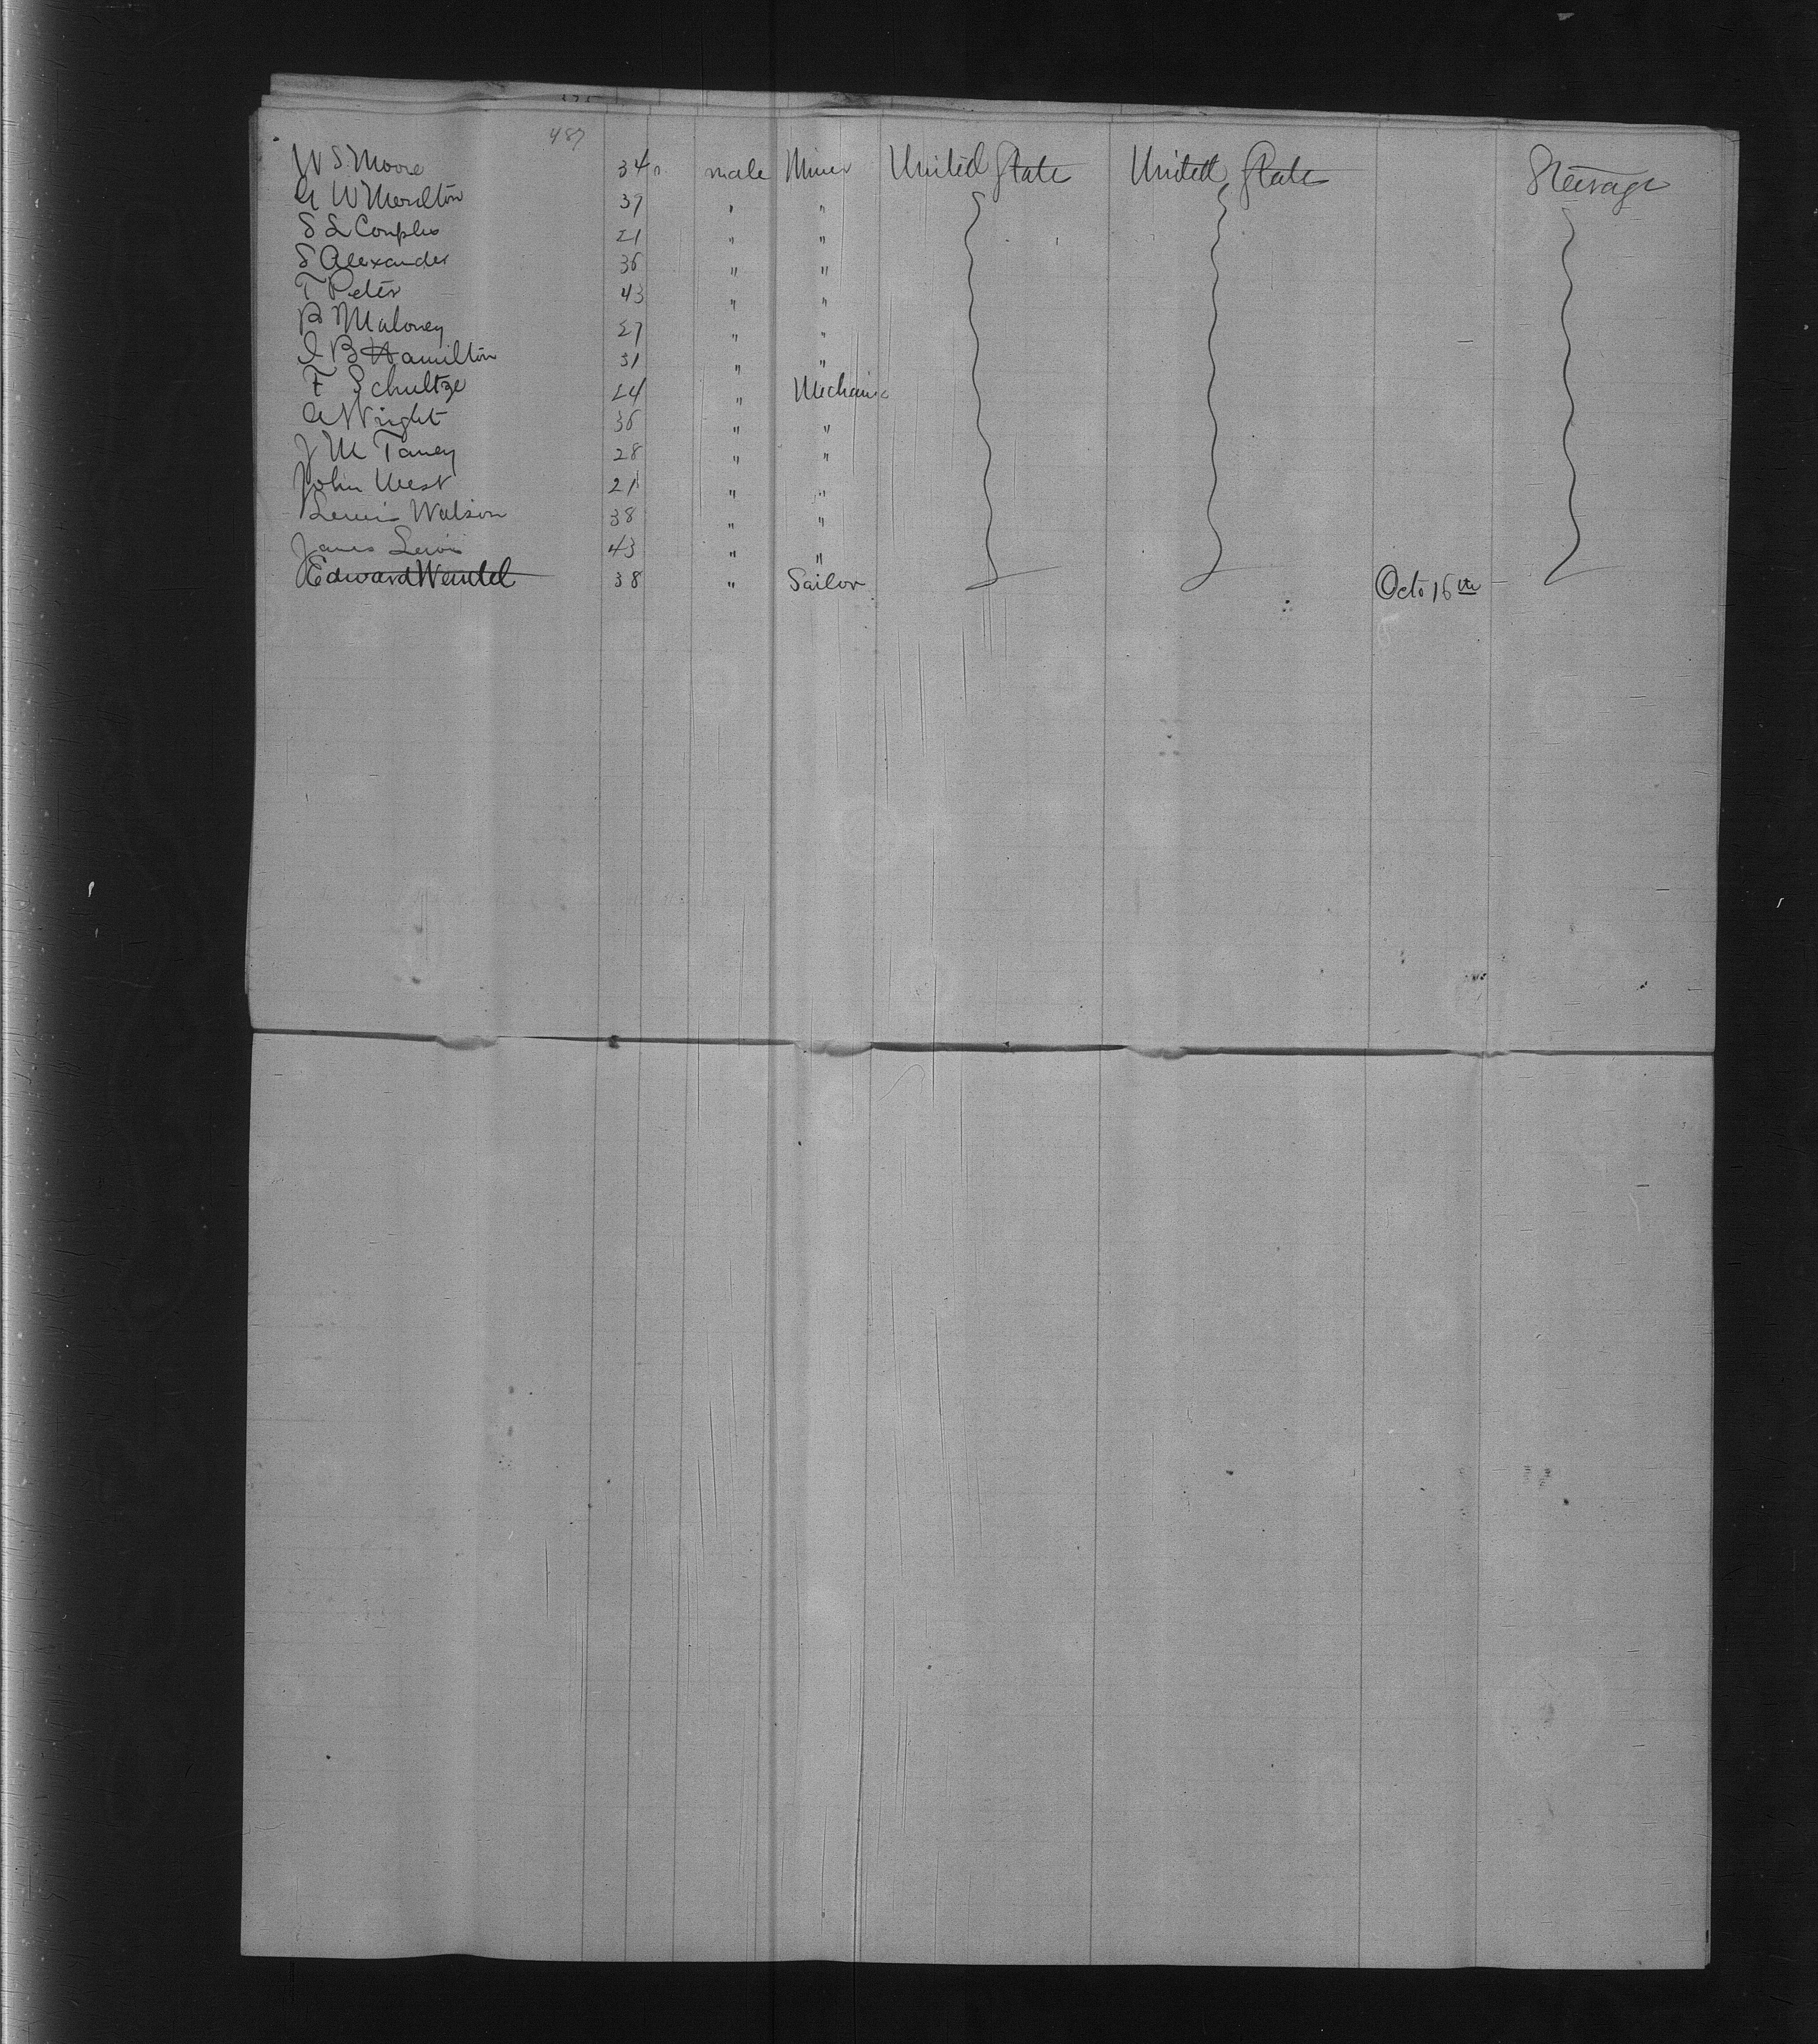 487
W S Moore 34 male Miner United State United State Steerage
G W Merilton 39 " "
S L Couples 21 " "
S Alexander 36 " "
T Peter 43 " "
B Maloney 27 " "
J B Hamilton 31 " "
F Schultze 24 " Mechanic
A Wright 36 " "
J M Taney 28 " "
John West 21 " "
Lewis Watson 38 " "
James Lewis 43 " "
Edward Wentel 38 " Sailor Octo 16th